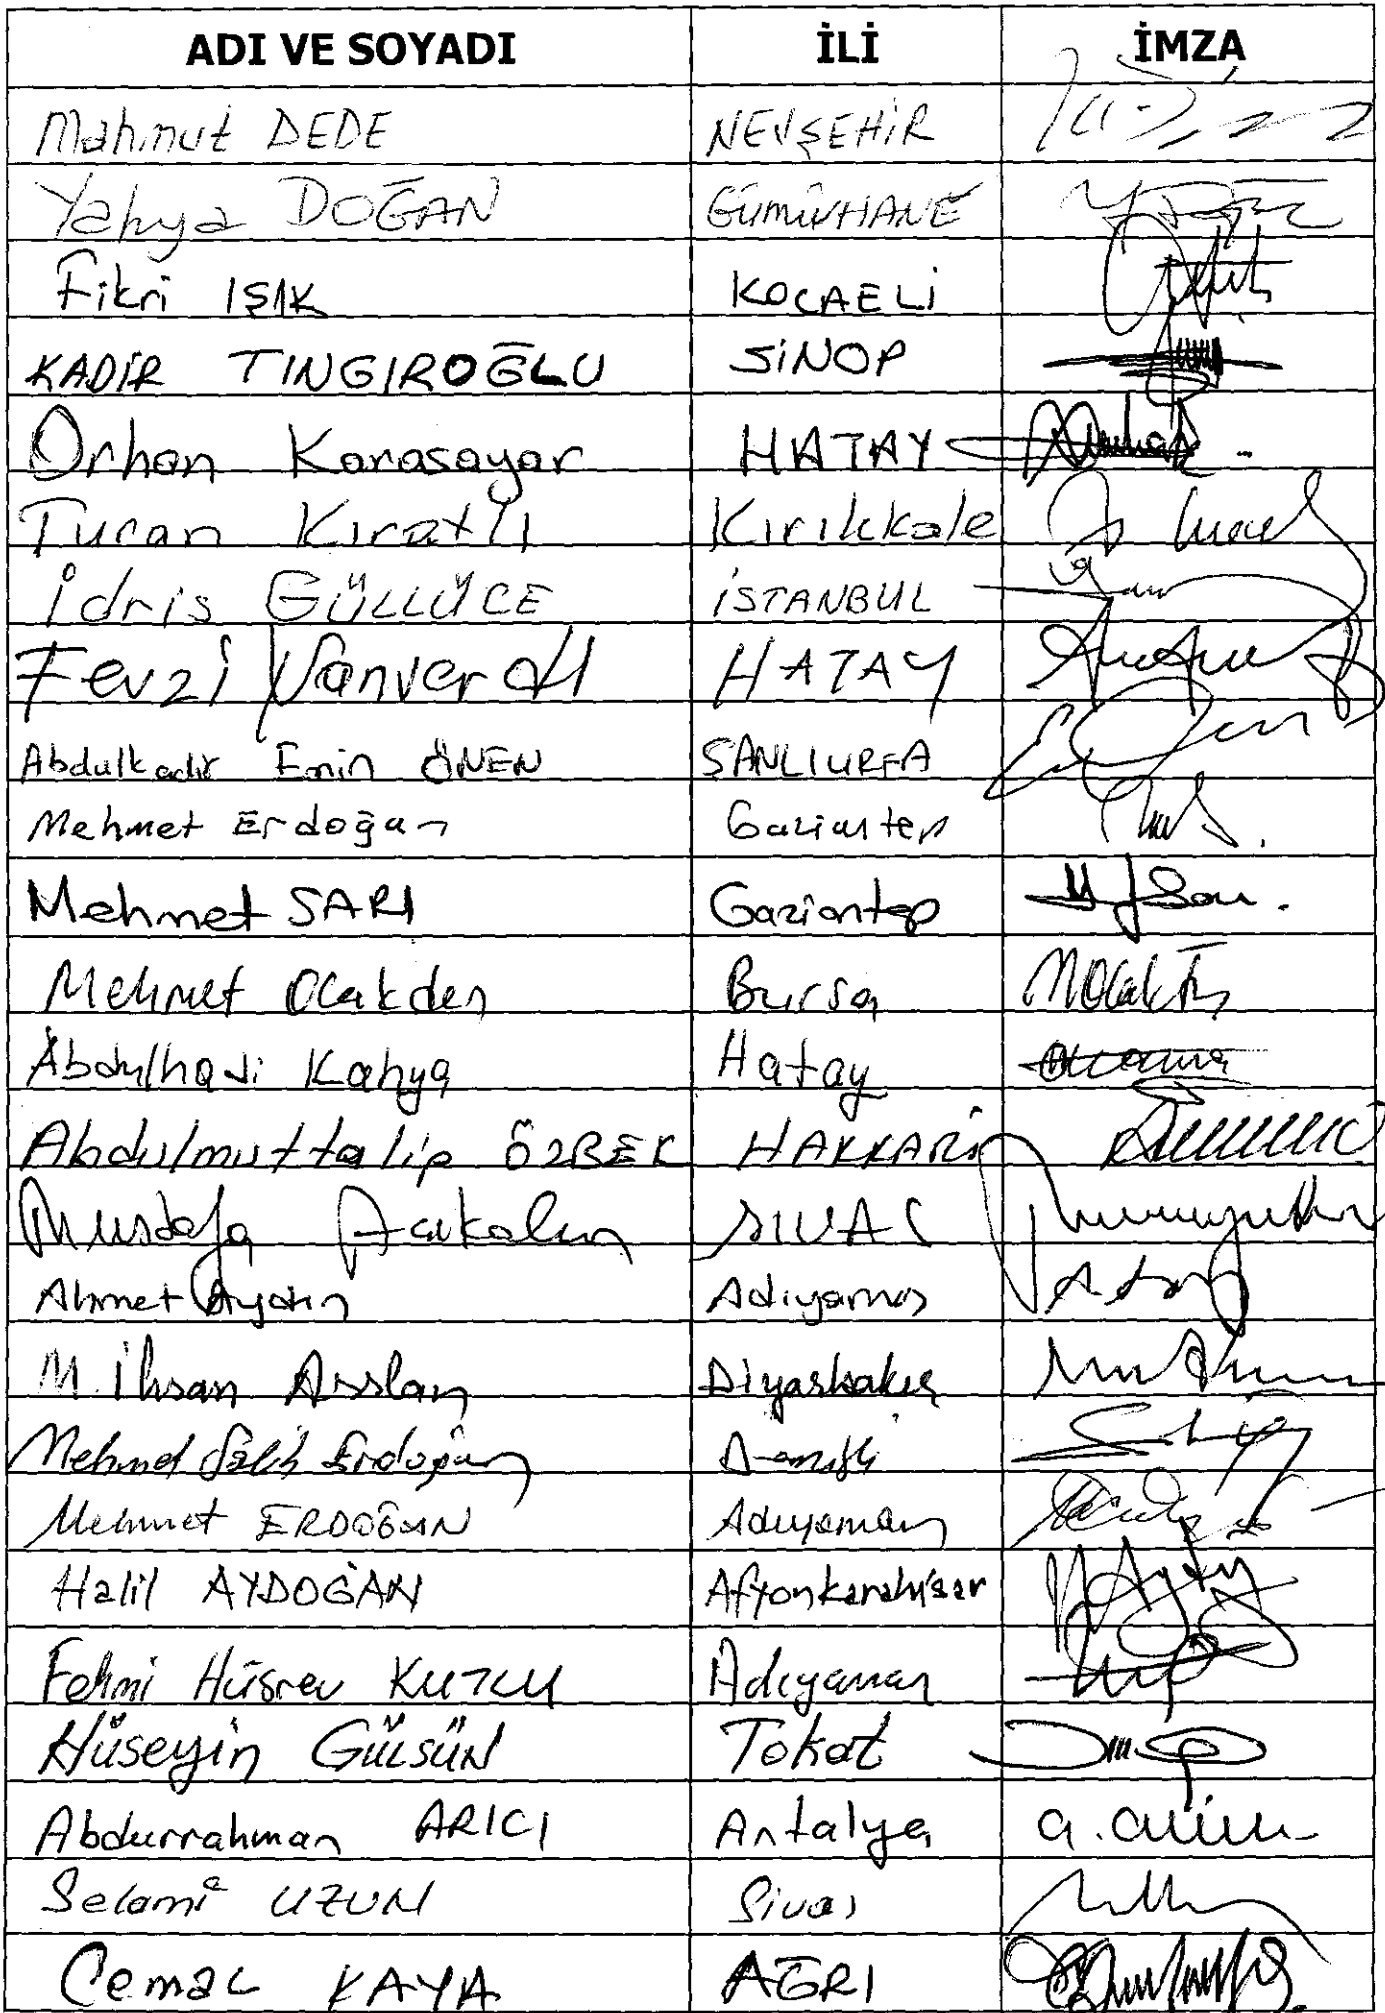 ADI VE SOYADI İLİ İMZA
Mahmut DEDE NEVŞEHİR
Yahya DOĞAN GÜMÜŞHANE
Fikri IŞIK KOCAELİ
KADİR TINGIROĞLU SİNOP
Orhan Karasayar HATAY
Turan Kıratlı Kırıkkale
İdris GÜLLÜCE İSTANBUL
Fevzi Şanverdi HATAY
Abdulkadir Emin ÖNEN ŞANLIURFA
Mehmet Erdoğan Gaziantep
Mehmet SARI Gaziantep
Mehmet Ocakden Bursa
Abdulhadi Kahya Hatay
Abdulmuttalip ÖZBEK HAKKARİ
Mustafa Açıkalın SIVAS
Ahmet Aydın Adıyaman
M. İhsan Arslan Diyarbakır
Mehmet Salih Erdoğan Denizli
Mehmet ERDOĞAN Adıyaman
Halil AYDOĞAN Afyonkarahisar
Fehmi Hüsrev KUTLU Adıyaman
Hüseyin GÜLSÜN Tokat
Abdurrahman ARICI Antalya
Selami UZUN Sivas
Cemal KAYA AĞRI